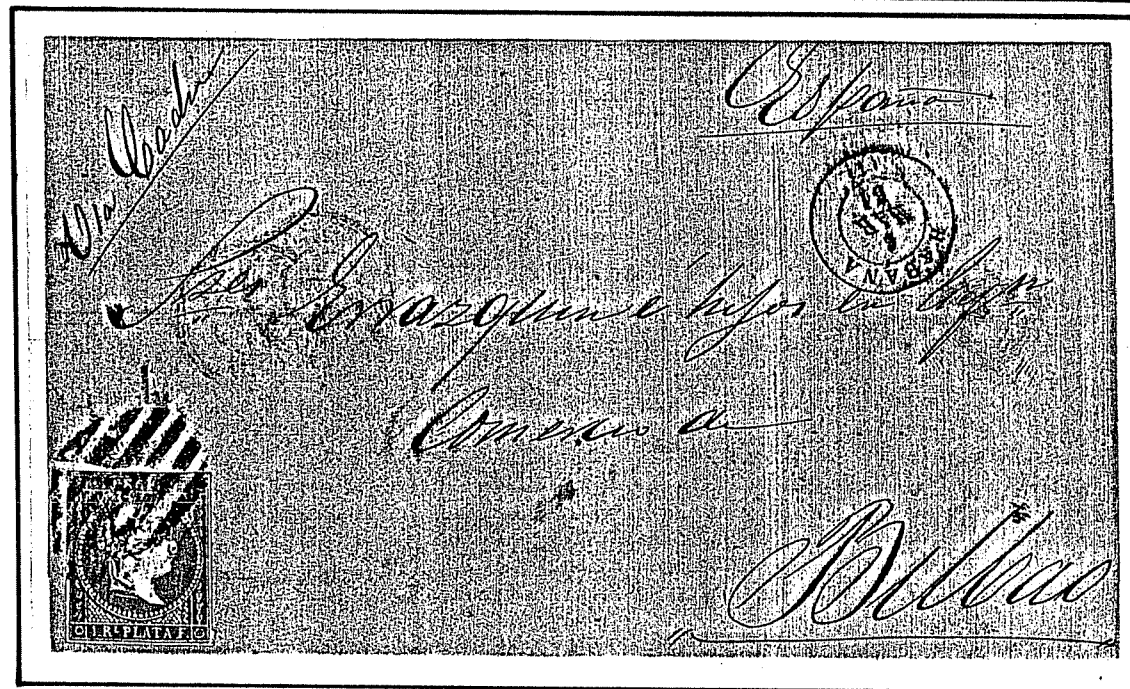 Via Madrid
España
HABANA
Sres Errazquin e hijos
Comercio de
Bilbao
1 RL PLATA F.